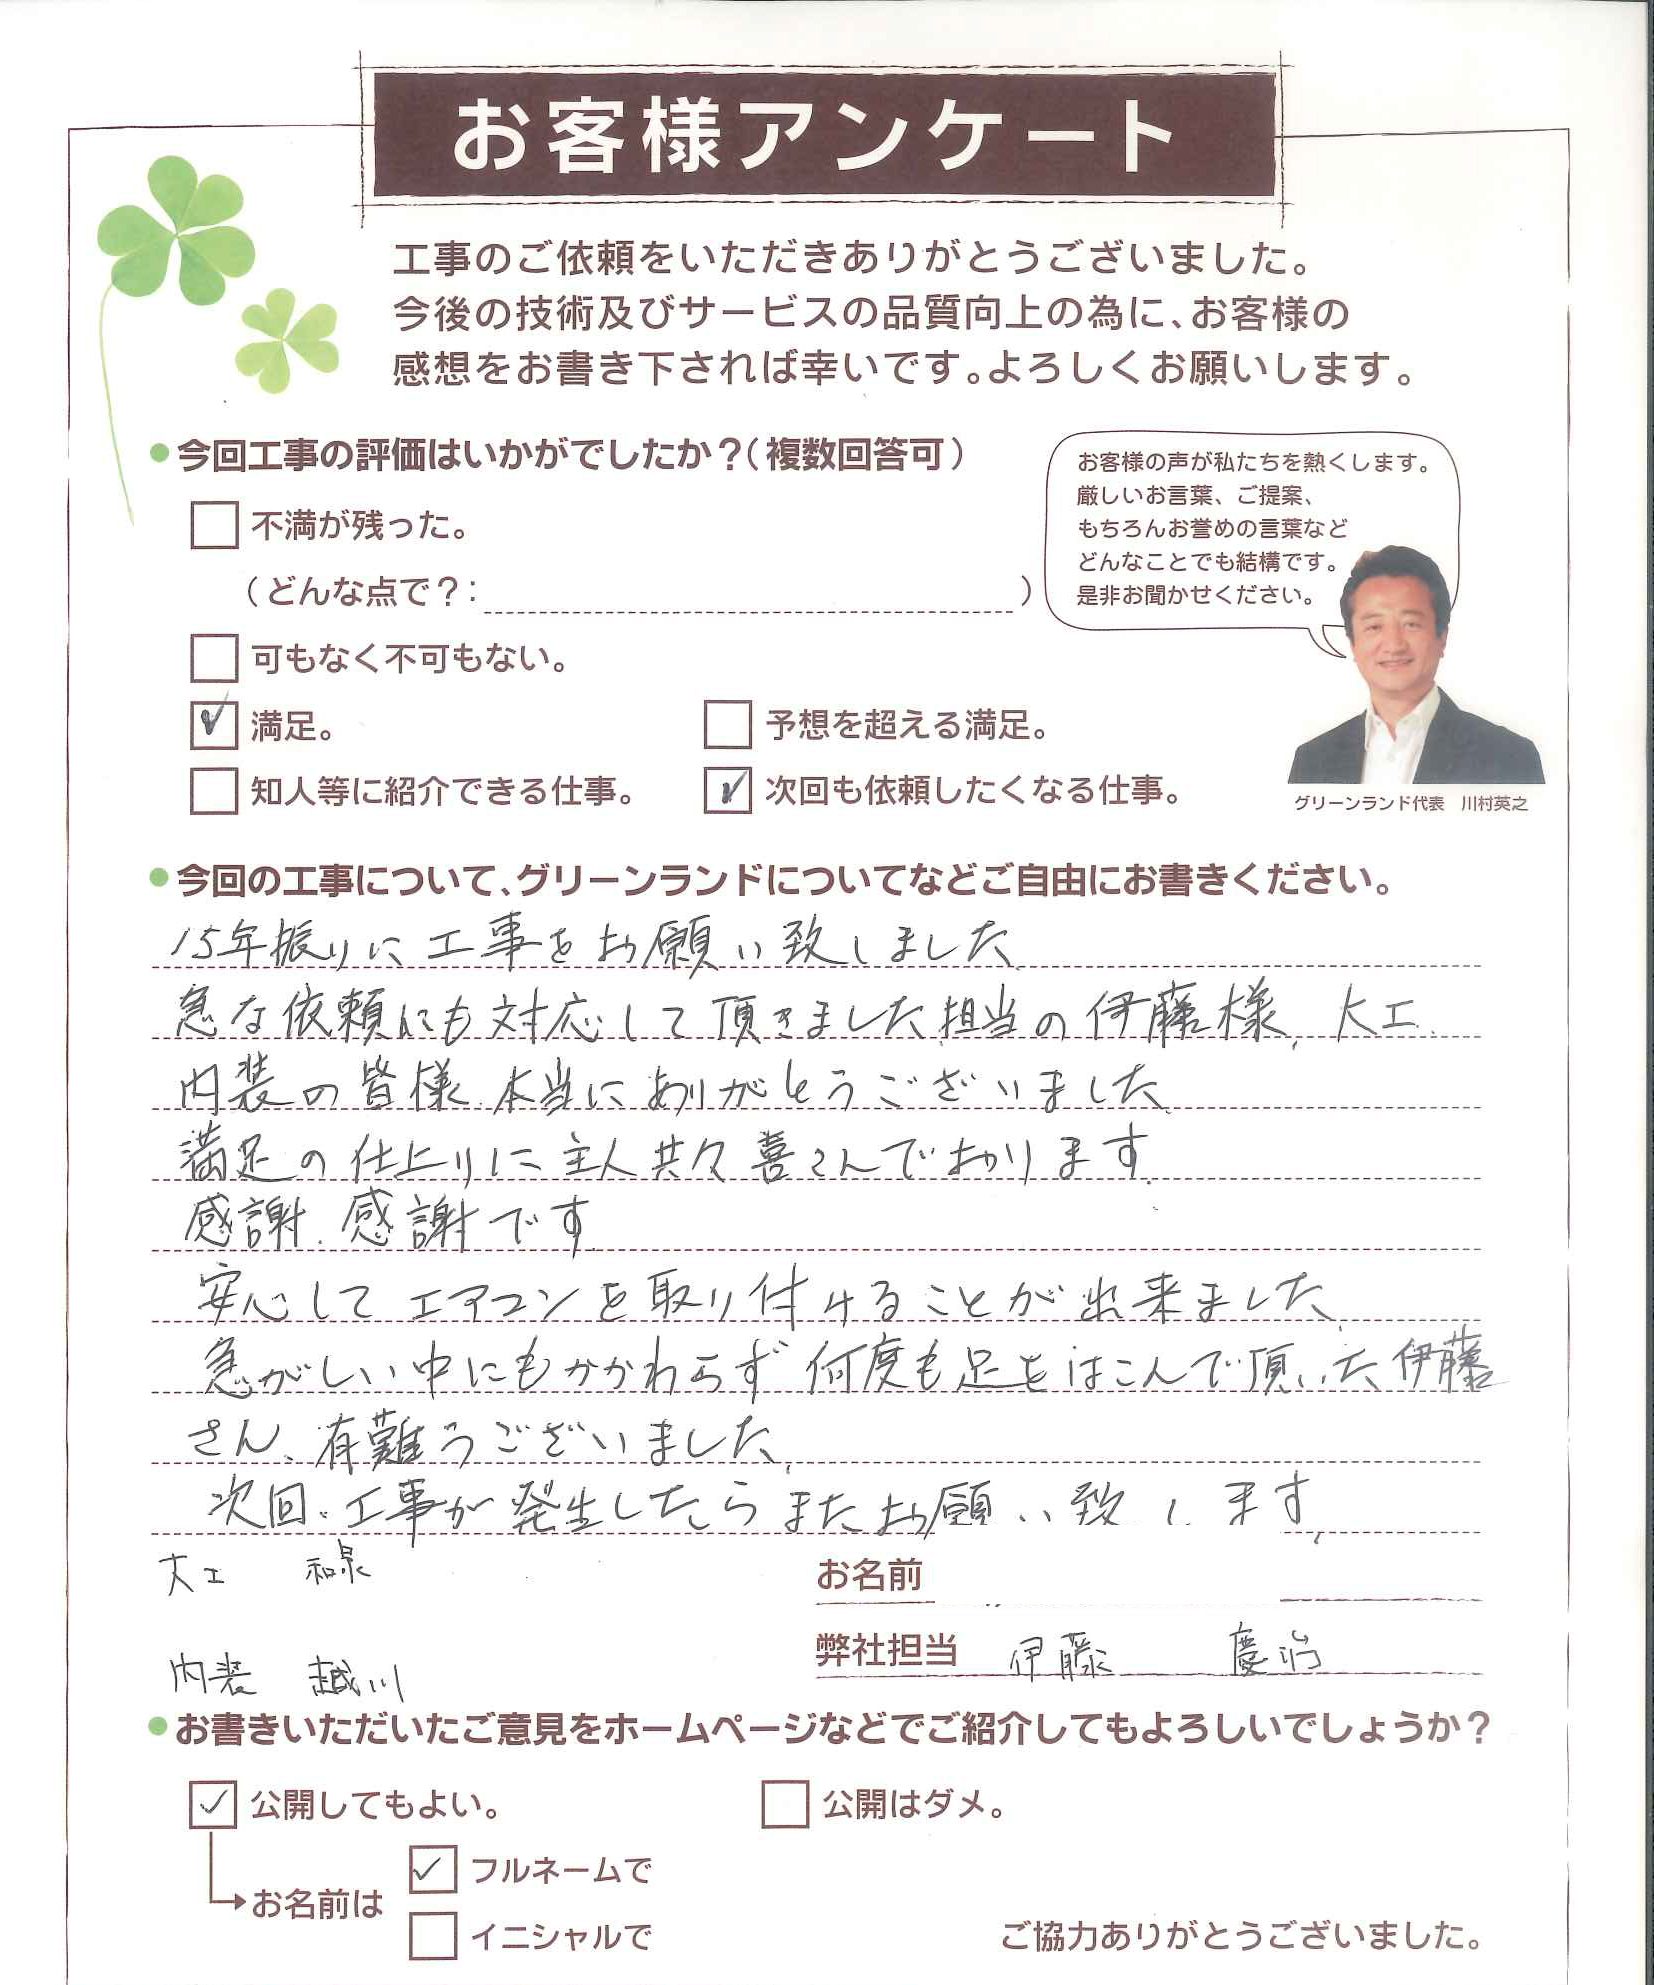 お客様アンケート
工事のご依頼をいただきありがとうございました。
今後の技術及びサービスの品質向上の為に、お客様の
感想をお書き下されば幸いです。よろしくお願いします。
今回工事の評価はいかがでしたか?(複数回答可)
不満が残った。
(どんな点で?: )
可もなく不可もない。
満足。
予想を超える満足。
知人等に紹介できる仕事。
次回も依頼したくなる仕事。
お客様の声が私たちを熱くします。
厳しいお言葉、ご提案、
もちろんお誉めの言葉など
どんなことでも結構です。
是非お聞かせください。
グリーンランド代表 川村英之
今回の工事について、グリーンランドについてなどご自由にお書きください。
15年振りに工事をお願い致しました
急な依頼にも対応して頂きました担当の伊藤様、大工
内装の皆様 本当にありがとうございました
満足の仕上りに主人共々喜こんでおります
感謝、感謝です
安心してエアコンを取り付けることが出来ました
急がしい中にもかかわらず何度も足をはこんで頂いた伊藤
さん、有難うございました
次回、工事が発生したらまたお願い致します
大工 和泉
内装 越川
お名前
弊社担当 伊藤 慶治
お書きいただいたご意見をホームページなどでご紹介してもよろしいでしょうか?
公開してもよい。
公開はダメ。
お名前は
フルネームで
イニシャルで
ご協力ありがとうございました。